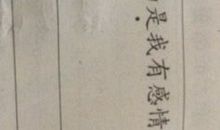 是我有感情